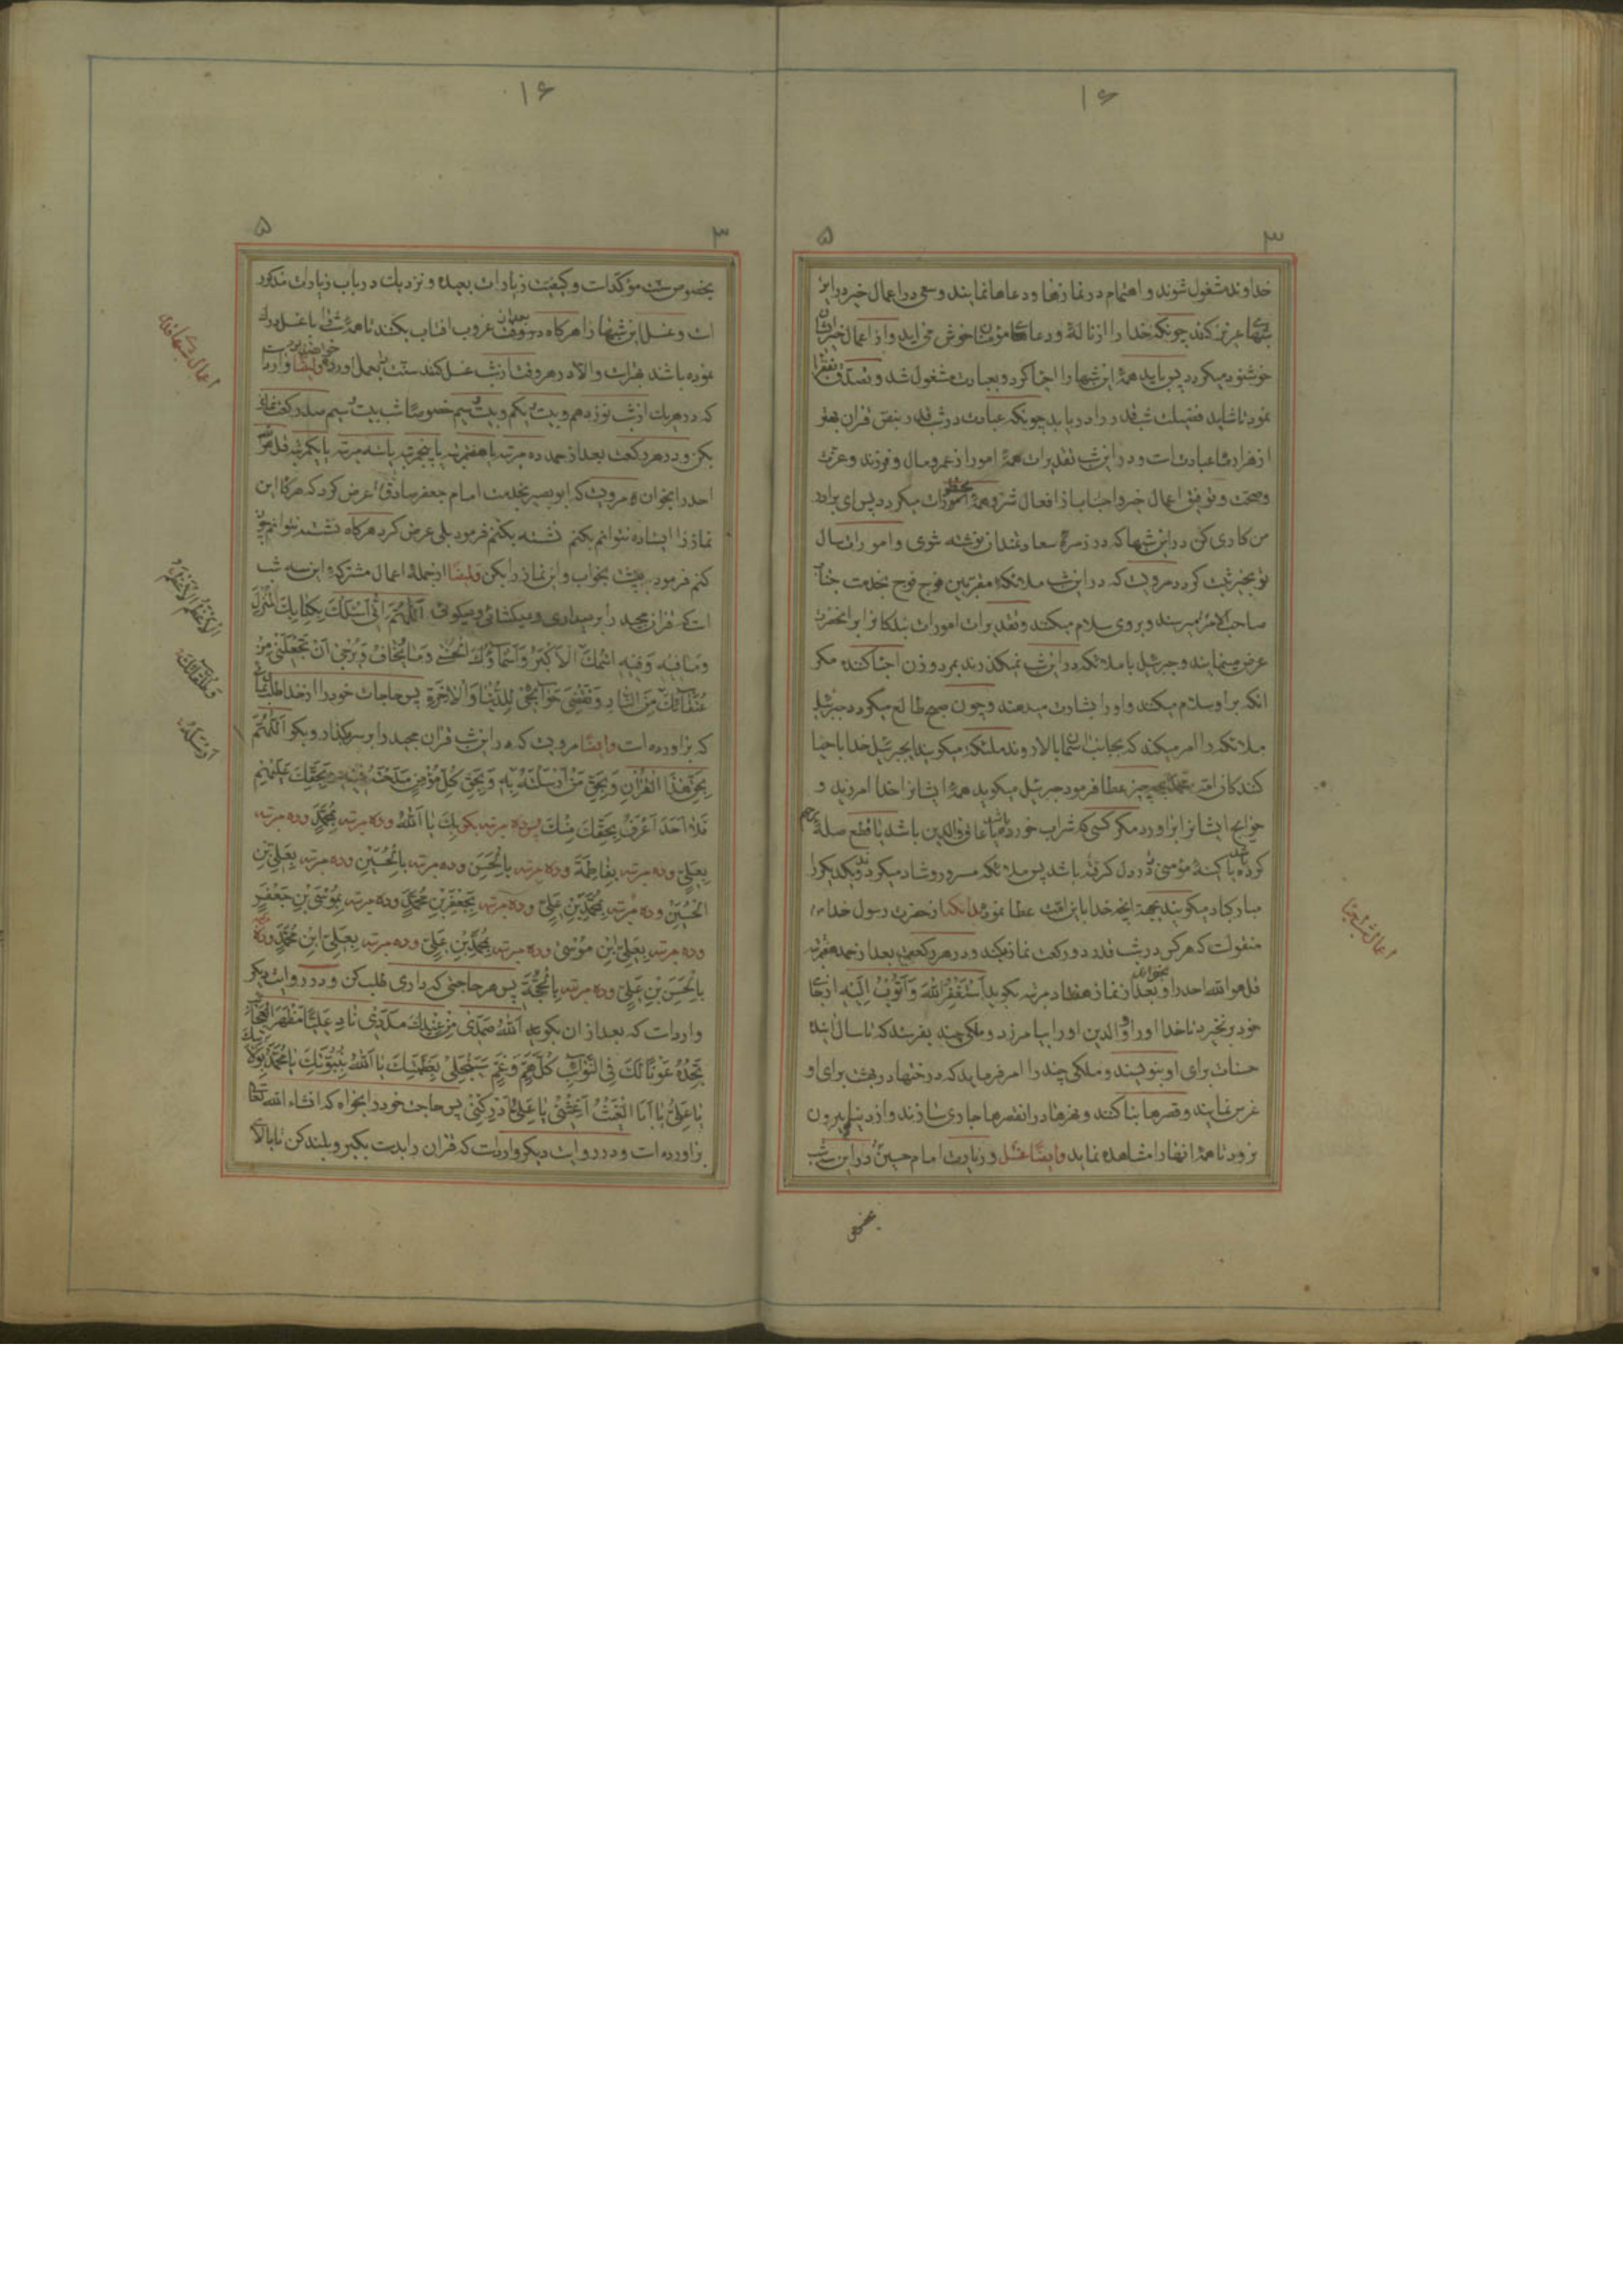 ۱۶
۵ ۳
خداوند مشغول شوند و اهتمام در نمازها و دعاها نمایند و سعی در اعمال خیر در این
شبهای عزیز کنند چونکه خدا را از ناله و دعای مؤمنان خوش می اید و از اعمال خیر ایشان
خوشنود میکردد پس باید همۀ این شبها را احیا کرد و بعبادت مشغول شد و تصدق بفقرا
نمود تا شاید فضیلت شب قدر را دریابد چونکه عبادت در شب قدر بنص قران بهتر
از هزار ماه عبادتست و در این شب تقدیرات همۀ امور از عمر و مال و فرزند و عزت
و صحت و توفیق اعمال خیر و اجتناب از افعال شر و همۀ امورات میکردد پس ای برادر
من کاری کن در این شبها که در زمرۀ سعادتمندان نوشته شوی و امورات سال
تو بخیر ثبت کردد مرویست که در این شب ملائکۀ مقربین فوج فوج بخدمت جناب
صاحب الامر میرسند و بروی سلام میکنند و تقدیرات امورات بندکانرا بر انحضرت
عرض مینمایند و جبرئیل با ملائکه در این شب نمیکذرند بمرد و زن احیا کننده مکر
انکه بر او سلام میکنند و او را بشارت میدهند و چون صبح طالع میکردد جبرئیل
ملائکه را امر میکند که بجانب اسمان بالا روند ملئکه میکویند ایجبرئیل خدا با حیا
کنندکان امت محمد چه چیز عطا فرمود جبرئیل میکوید همۀ ایشانرا خدا امرزید و
حوایج ایشانرا براورد مکر کسی که شراب خورده باشد یا عاق والدین باشد یا قطع صلۀ رحم
کرده باشد یا کینۀ مؤمنی در دل کرفته باشد پس ملائکه مسرور و شاد میکردند و یکدیکر را
مبارکباد میکویند بجهة انچه خدا باین امت عطا نموده بدانکه از حضرت رسول خدا ص
منقولست که هر کس در شب قدر دو رکعت نماز بکند و در هر رکعت بعد از حمد هفت مرتبه
قل هو الله احد را بخواند و بعد از نماز هفتاد مرتبه بکوید اَسْتَغْفِرُ اللّٰهَ وَ اَتُوبُ اِلَیْهِ از جای
خود برنخیزد تا خدا او را و والدین او را بیامرزد و ملکی چند بفرستد که تا سال اینده
حسنات برای او بنویسند و ملکی چند را امر فرماید که درختها در بهشت برای او
غرس نمایند و قصرها بنا کنند و نهرها در انقصرها جاری سازند و از دنیا بیرون
نرود تا همۀ انها را مشاهده نماید وایضًا غسل و زیارت امام حسین در این سه شب
بخصوص
اعمال شبهای احیا
۱۶
۵ ۳
بخصوص سنت مؤکدست و کیفیت زیارات بعیده و نزدیک در باب زیارات مذکور
است و غسل این شبها را هرکاه در وقت غروب افتاب بکنند تا همۀ شب را با غسل درک
نموده باشد بهتر است والا در هر وقت از شب غسل کند سنت بعمل اورده وایضًا وارد است
که در هر یک از شب نوزدهم و بیست و یکم و بیست و سیم خصوصًا شب بیست و سیم صد رکعت نماز
بکن و در هر رکعت بعد از حمد ده مرتبه یا هفت مرتبه یا پنج مرتبه یا سه مرتبه یا یکمرتبه قل هو الله
احد را بخوان و مرویست که ابو بصیر بخدمت امام جعفر صادق عرض کرد که هرکاه این
نماز را ایستاده نتوانم بکنم نشسته بکنم فرمود بلی عرض کرد هرکاه نشسته نتوانم چون
کنم فرمود به پشت بخواب و این نماز را بکن وایضًا از جملۀ اعمال مشترکۀ این سه شب
است که قران مجید را برمیداری و میکشائی و میکوئی اَللّٰهُمَّ اِنّی اَسْئَلُكَ بِکِتابِكَ الْمُنْزَلِ
وَ مٰا فیهِ وَ فیهِ اسْمُكَ الْاَکْبَرُ وَ اَسْمٰاؤُكَ الْحُسْنٰی وَ مٰا یُخٰافُ وَ یُرْجٰی اَنْ تَجْعَلَنی مِنْ
عُتَقٰائِكَ مِنَ النّٰارِ وَ تَقْضِیَ حَوٰائِجی لِلدُّنْیٰا وَ الْاٰخِرَةِ پس حاجات خود را از خدا طلب نمائی
که براورده است وایضًا مرویست که در این شب قران مجید را بر سر بکذار و بکو اَللّٰهُمَّ
بِحَقِّ هٰذَا الْقُرْاٰنِ وَ بِحَقِّ مَنْ اَرْسَلْتَهُ بِهِ وَ بِحَقِّ کُلِّ مُؤْمِنٍ مَدَحْتَهُ فیهِ وَ بِحَقِّكَ عَلَیْهِمْ
فَلٰا اَحَدَ اَعْرَفُ بِحَقِّكَ مِنْكَ پس ده مرتبه بکو بِكَ یٰا اَللّٰهُ و ده مرتبه بِمُحَمَّدٍ و ده مرتبه
بِعَلِیٍّ و ده مرتبه بِفٰاطِمَةَ و ده مرتبه بِالْحَسَنِ و ده مرتبه بِالْحُسَیْنِ و ده مرتبه بِعَلِیِّ بْنِ
الْحُسَیْنِ و ده مرتبه بِمُحَمَّدِ بْنِ عَلِیٍّ و ده مرتبه بِجَعْفَرِ بْنِ مُحَمَّدٍ و ده مرتبه بِمُوسَی بْنِ جَعْفَرٍ
و ده مرتبه بِعَلِیِّ ابْنِ مُوسٰی و ده مرتبه بِمُحَمَّدِ بْنِ عَلِیٍّ و ده مرتبه بِعَلِیِّ ابْنِ مُحَمَّدٍ و ده مرتبه
بِالْحَسَنِ بْنِ عَلِیٍّ و ده مرتبه بِالْحُجَّةِ پس هر حاجتی که داری طلب کن و در روایت دیکر
وارد است که بعد از ان بکوید اَللّٰهُ صَمَدی مِنْ عِنْدِكَ مَدَدی نٰادِ عَلِیًّا مَظْهَرَ الْعَجٰائِبِ
تَجِدْهُ عَوْنًا لَكَ فِی النَّوٰائِبِ کُلُّ هَمٍّ وَ غَمٍّ سَیَنْجَلی بِعَظَمَتِكَ یٰا اَللّٰهُ بِنُبُوَّتِكَ یٰا مُحَمَّدُ بِوَلٰایَتِكَ
یٰا عَلِیُّ یٰا اَبَا الْغَیْثِ اَغِثْنی یٰا عَلِیُّ اَدْرِکْنی پس حاجت خود را بخواه که انشاء الله تعالی
براورده است و در روایت دیکر وارد است که قران را بدست بکیر و بلند کن تا بالای
اعمال شبهای قدر
الْاَعْظَمُ الْاَعْظَمُ
وَ طُلَقٰائِكَ
اَرْسَلْتَهُ